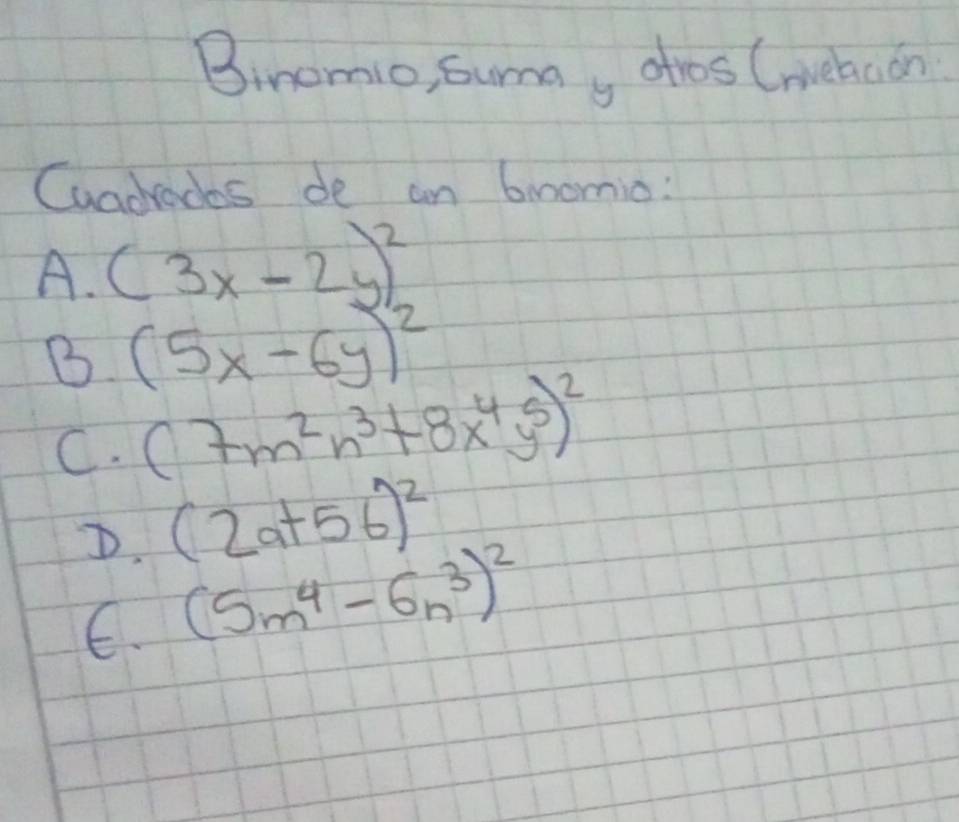 Binomio, Suma y otros (nivelación.
Cuadrados de un binomio:
A. (3x - 2y)²
B. (5x - 6y)²
C. (7m²n³ + 8x⁴y⁵)²
D. (2a+5b)²
E. (5m⁴ - 6n³)²